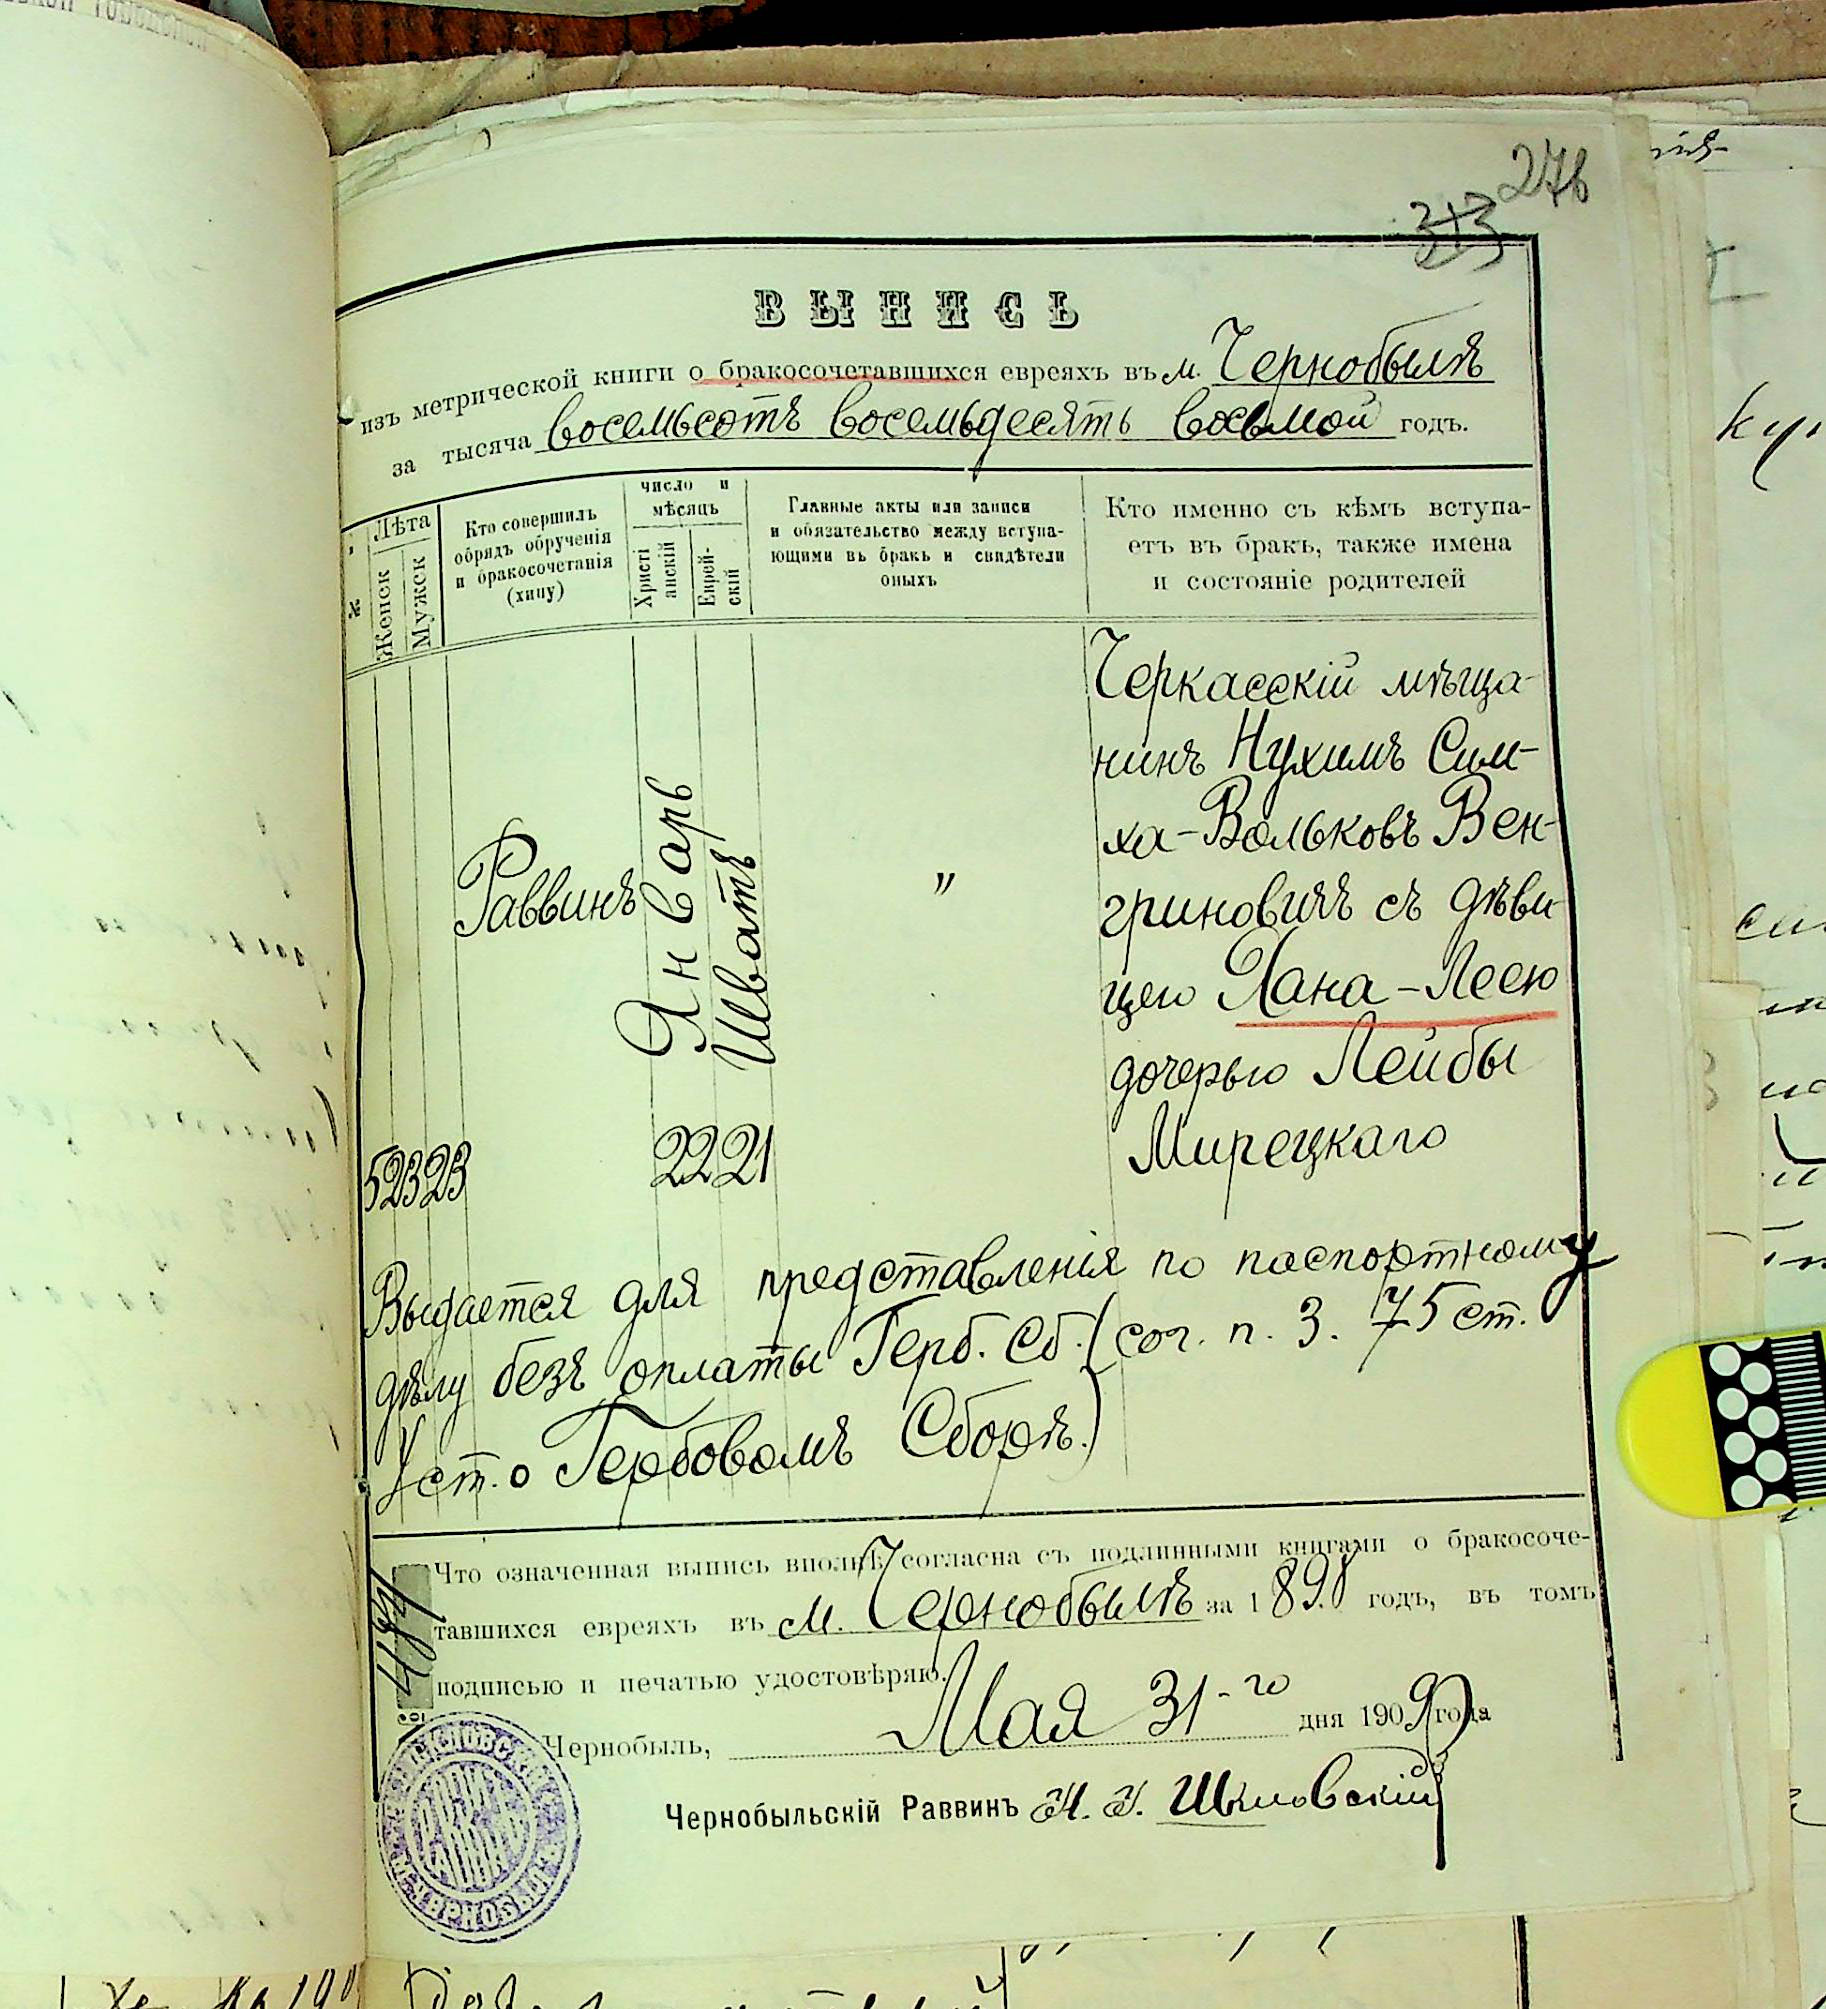 276
313
ВЫПИСЬ
изъ метрической книги о бракосочетавшихся евреяхъ въ м. Чернобылѣ
за тысяча восемьсотъ восемьдесять восьмой годъ.
№
Лѣта
Женск
Мужск
Кто совершилъ
обрядъ обрученія
и бракосочетанія
(хипу)
число и
мѣсяцъ
Христі
анскій
Еврей-
скій
Главные акты или записи
и обязательство между вступа-
ющими въ бракъ и свидѣтели
оныхъ
Кто именно съ кѣмъ вступа-
етъ въ бракъ, также имена
и состояніе родителей
5
23
23
Раввинъ
Январь
22
Шватъ
21
"
Черкасскій мѣща-
нинъ Нухимъ Сим-
ха-Вольковъ Вен-
гриновичъ съ дѣви-
цею Хана-Леею
дочерью Лейбы
Мирецкаго
Выдается для представленія по паспортному
дѣлу безъ оплаты Герб. Сб. (сог. п. 3. 75 ст.
Уст. о Гербовомъ Сборѣ.)
Что означенная выпись вполнѣ согласна съ подлинными книгами о бракосоче-
тавшихся евреяхъ въ м. Чернобылѣ за 1898 годъ, въ томъ
подписью и печатью удостовѣряю.
Чернобыль, Мая 31-го дня 1909 года
Чернобыльскій Раввинъ Н. И. Шкловскій
М. ЧЕРНОБЫЛЬ